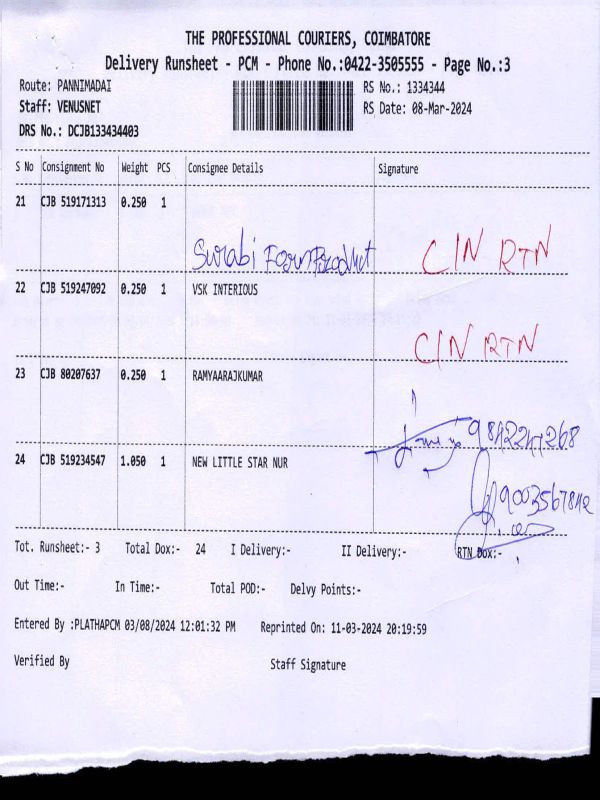 THE PROFESSIONAL COURIERS, COIMBATORE
Delivery Runsheet - PCM - Phone No.:0422-3505555 - Page No.:3
Route: PANNIMADAI RS No.: 1334344
Staff: VENUSNET RS Date: 08-Mar-2024
DRS No.: DCJB133434403
S No Consignment No Weight PCS Consignee Details Signature
21 CJB 519171313 0.250 1
Surabi Foam Product C/N RTN
22 CJB 519247092 0.250 1 VSK INTERIOUS
C/N RTN
23 CJB 80207637 0.250 1 RAMYAARAJKUMAR
9842247268
24 CJB 519234547 1.050 1 NEW LITTLE STAR NUR
9003567842
Tot. Runsheet:- 3 Total Dox:- 24 I Delivery:- II Delivery:- RTN Dox:-
Out Time:- In Time:- Total POD:- Delvy Points:-
Entered By :PLATHAPCM 03/08/2024 12:01:32 PM Reprinted On: 11-03-2024 20:19:59
Verified By Staff Signature